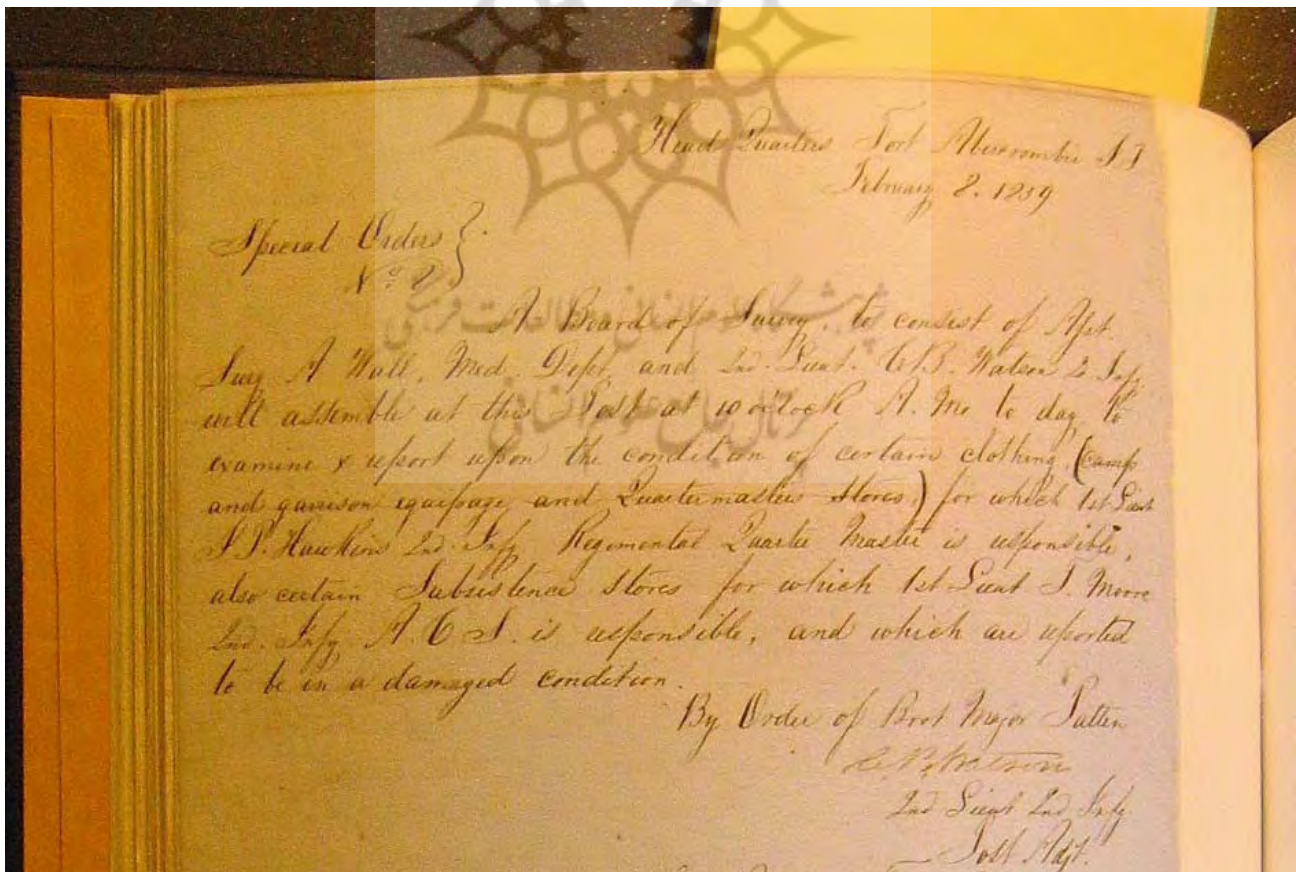 Head Quarters Fort Abercrombie
February 2. 1859
Special Orders
No. 2
A Board of Survey, to consist of Asst.
Surg A Wall, Med. Dept, and 2nd. Lieut. C.B. Watson 2 Infy
will assemble at this Post at 10 o'clock A. M. to day, to
examine & report upon the condition of certain clothing, (camp
and garrison equipage, and Quartermasters stores,) for which 1st Lieut
J.P. Hawkins 2nd. Infy. Regimental Quarter Master is responsible,
also certain Subsistence stores for which 1st Lieut T. Moore
2nd. Infy. A. C. S. is responsible, and which are reported
to be in a damaged condition.
By Order of Brvt Major Patten
C.B. Watson
2nd Lieut 2nd Infy.
Post Adjt.
پژوهشگاه علوم انسانی و مطالعات فرهنگی
پرتال جامع علوم انسانی